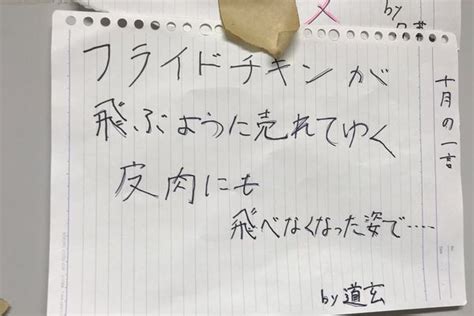 十月の一言
フライドチキンが
飛ぶように売れてゆく
皮肉にも
飛べなくなった姿で‥‥
by道玄
by